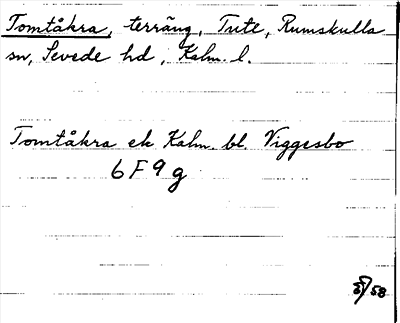 Tomtåkra, terräng, Tute, Rumskulla
sn, Sevede hd, Kalm. l.
Tomtåkra ek Kalm. bl. Viggesbo
6 F 9 g
/58